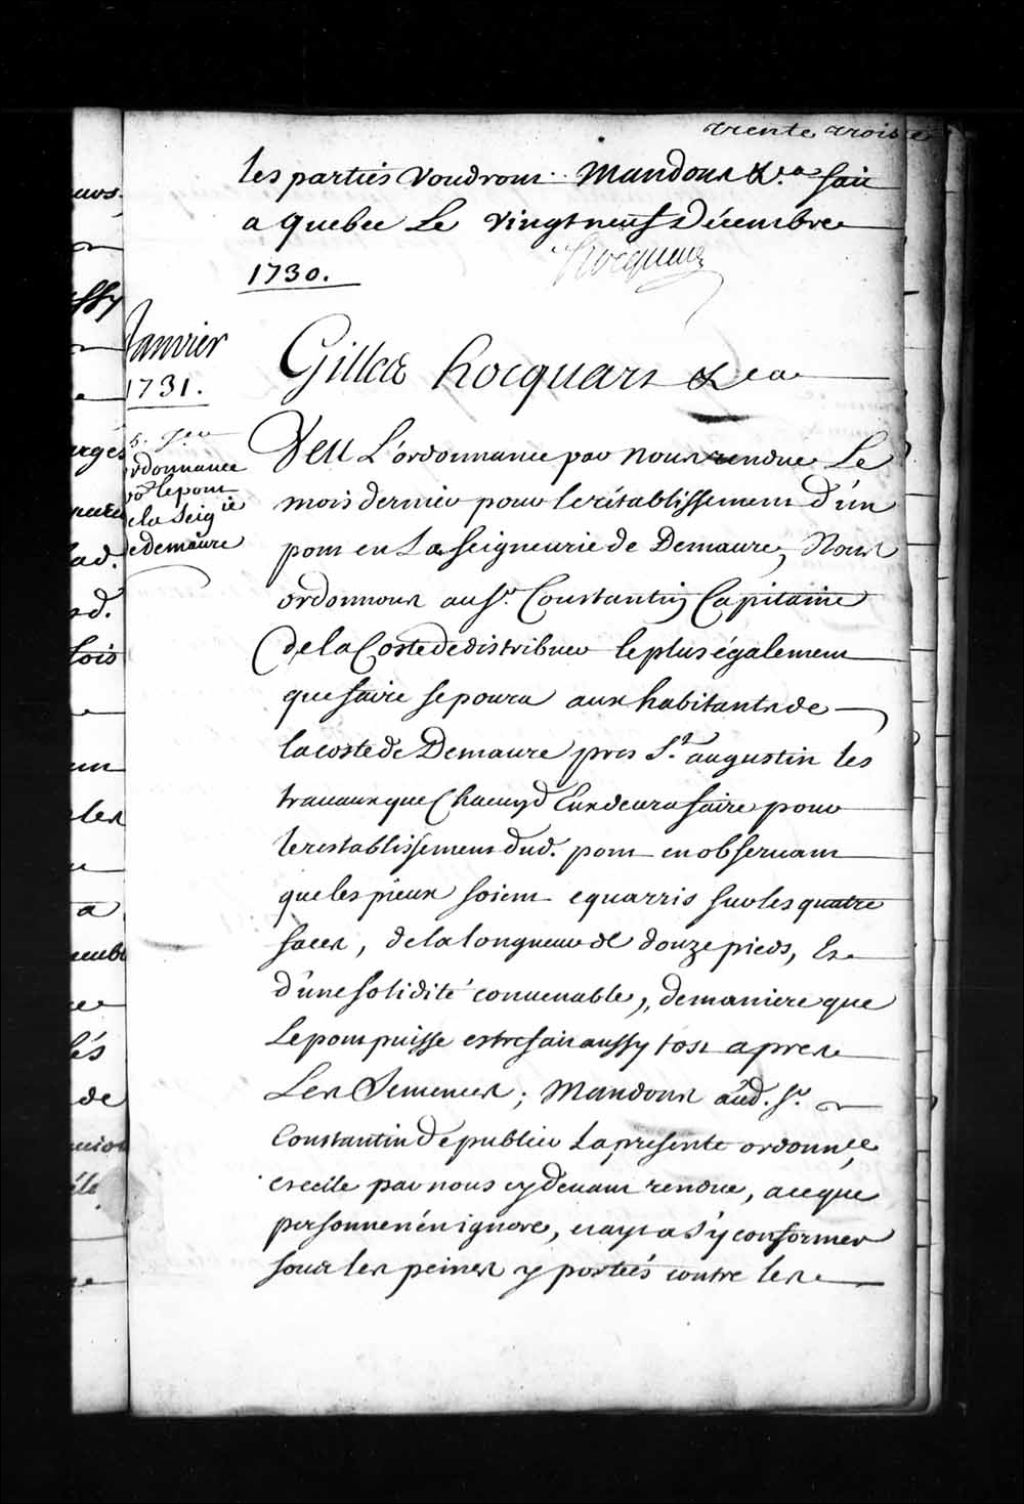 trente trois
les parties Voudront. Mandons &.ca fait
a quebec Le vingt neuf Décembre
1730.
Hocquart
Janvier
1731.
Gilles hocquart &ca
5. Jer
ordonnance
po.r le pont
de la Seig.ie
de demaure
Veu L'ordonnance par nous rendue Le
mois dernier pour le rétablissement d'un
pont en La seigneurie de Demaure, Nous
ordonnons au Sr. Constantin Capitaine
de la Coste de distribuer le plus également
que faire se poura aux habitants de
la coste de Demaure pres St. augustin les
travaux que Chacun d'Eux devra faire pour
le restablissement dud. pont en observant
que les pieux soient equarris sur les quatre
faces, de la longueur de douze pieds, Et
d'une solidité convenable, de maniere que
Le pont puisse estre fait aussy tost apres
Les Semences; Mandons aud. Sr.
Constantin de publier La presente ordonn.ce
et celle par nous cy devant rendue, a ce que
personne n'en ignore, et ayt a s'y conformer
sous les peines y portées contre les